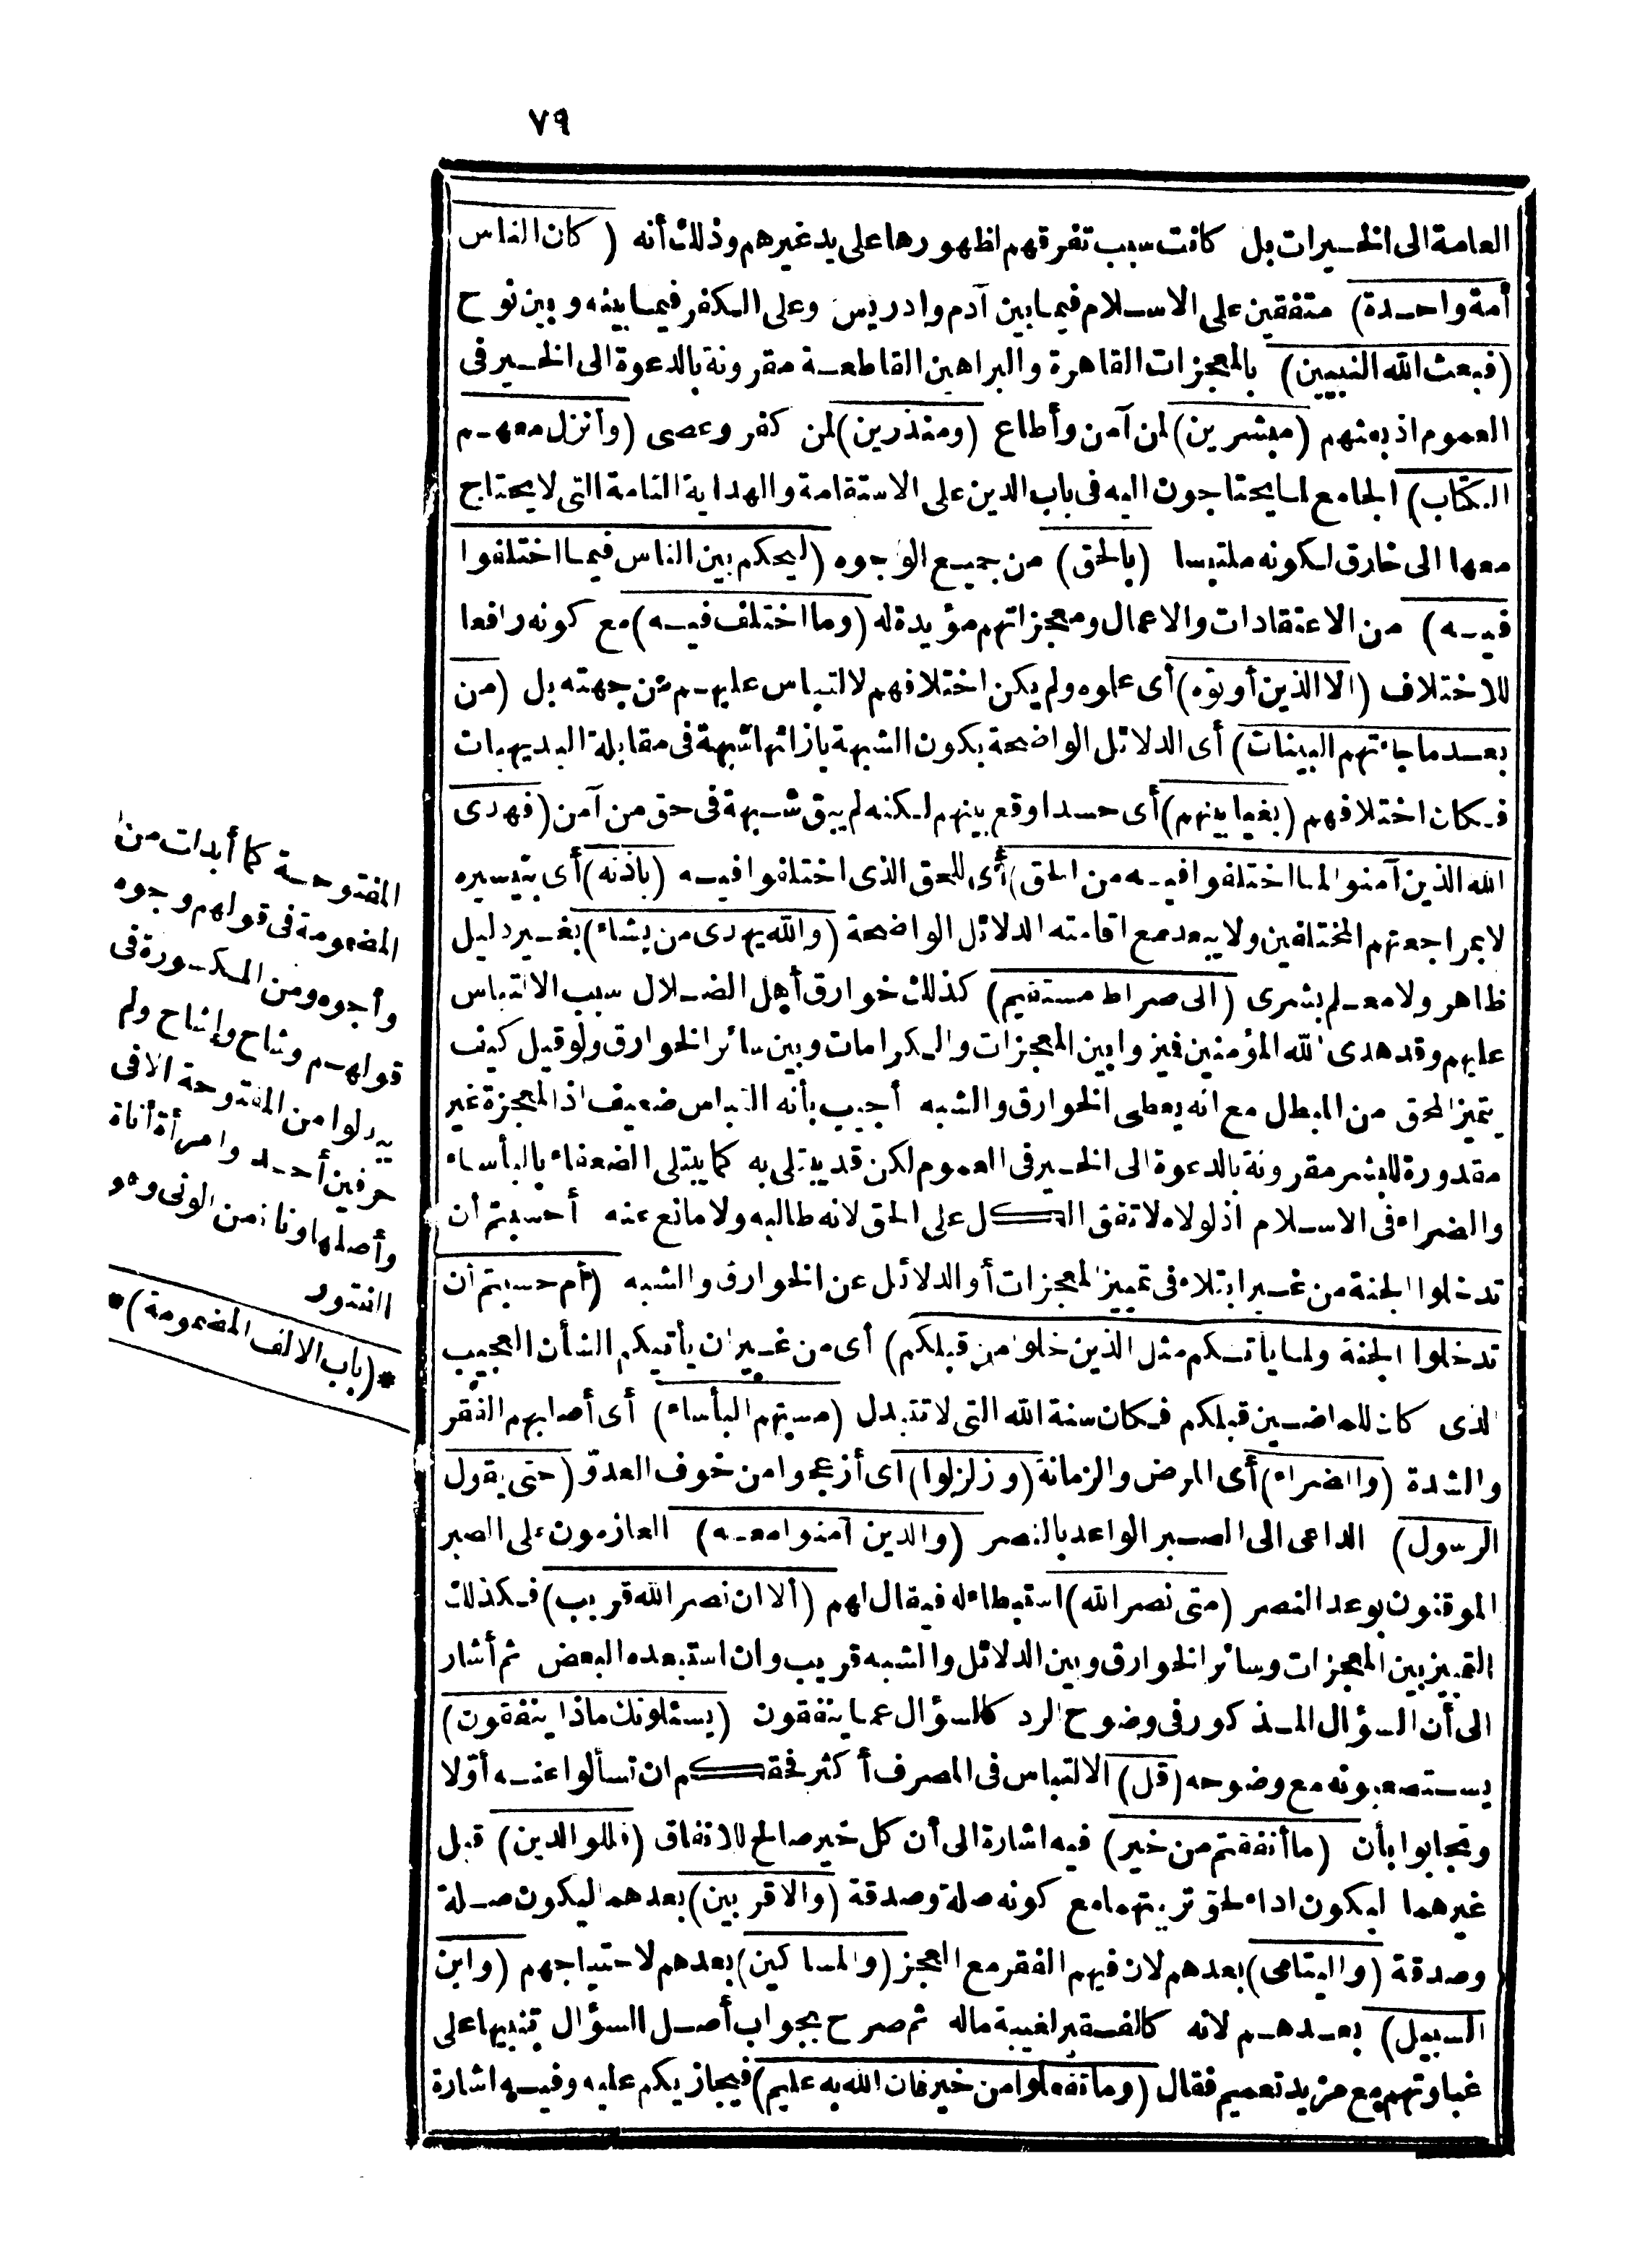 ٧٩
العامة الى الخيرات بل كانت سبب تفرقهم لظهورها على يد غيرهم وذلك أنه (كان الناس
أمة واحدة) متفقين على الاسلام فيما بين آدم وادريس وعلى الكفر فيما بينه وبين نوح
(فبعث الله النبيين) بالمعجزات القاهرة والبراهين القاطعة مقرونة بالدعوة الى الخير فى
العموم اذ بعثهم (مبشرين) لمن آمن وأطاع (ومنذرين) لمن كفر وعصى (وأنزل معهم
الكتاب) الجامع لما يحتاجون اليه فى باب الدين على الاستقامة والهداية التامة التى لا يحتاج
معها الى خارق لكونه ملتبسا (بالحق) من جميع الوجوه (ليحكم بين الناس فيما اختلفوا
فيه) من الاعتقادات والاعمال ومعجزاتهم مؤيدة له (وما اختلف فيه) مع كونه رافعا
للاختلاف (الا الذين أوتوه) أى علموه ولم يكن اختلافهم لالتباس عليهم من جهته بل (من
بعد ما جاءتهم البينات) أى الدلائل الواضحة بكون الشبهة بازائها شبهة فى مقابلة البديهيات
فكان اختلافهم (بغيا بينهم) أى حسدا وقع بينهم لكنه لم يبق شبهة فى حق من آمن (فهدى
الله الذين آمنوا لما اختلفوا فيه من الحق) أى للحق الذى اختلفوا فيه (باذنه) أى بتيسيره
لا بمراجعتهم المختلفين ولا يبعد مع اقامته الدلائل الواضحة (والله يهدى من يشاء) بغير دليل
ظاهر ولا معلم بشرى (الى صراط مستقيم) كذلك خوارق أهل الضلال سبب الالتباس
عليهم وقد هدى الله المؤمنين فميزوا بين المعجزات والكرامات وبين سائر الخوارق ولو قيل كيف
يتميز المحق من المبطل مع انه يعطى الخوارق والشبه أجيب بأنه التباس ضعيف اذ المعجزة غير
مقدورة للبشر مقرونة بالدعوة الى الخير فى العموم لكن قد يبتلى به كما يبتلى الضعفاء بالبأساء
والضراء فى الاسلام اذ لولاه لاتفق الكل على الحق لانه طالبه ولا مانع عنه أحسبتم أن
تدخلوا الجنة من غير ابتلاء فى تمييز المعجزات أو الدلائل عن الخوارق والشبه (أم حسبتم أن
تدخلوا الجنة ولما يأتكم مثل الذين خلوا من قبلكم) أى من غير ان يأتيكم الشأن العجيب
الذى كان للماضين قبلكم فكان سنة الله التى لا تتبدل (مستهم البأساء) أى أصابهم الفقر
والشدة (والضراء) أى المرض والزمانة (وزلزلوا) أى أزعجوا من خوف العدوّ (حتى يقول
الرسول) الداعى الى الصبر الواعد بالنصر (والذين آمنوا معه) العازمون على الصبر
الموقنون بوعد النصر (متى نصر الله) استبطاء له فيقال لهم (ألا ان نصر الله قريب) فكذلك
التمييز بين المعجزات وسائر الخوارق وبين الدلائل والشبه قريب وان استبعده البعض ثم أشار
الى أن السؤال المذكور فى وضوح الرد كالسؤال عما ينفقون (يسئلونك ماذا ينفقون)
يستصعبونه مع وضوحه (قل) الالتباس فى المصرف أكثر فحقكم ان تسألوا عنه أوّلا
وتجابوا بأن (ما أنفقتم من خير) فيه اشارة الى أن كل خير صالح للانفاق (فللوالدين) قبل
غيرهما ليكون اداء لحق تربيتهما مع كونه صلة وصدقة (والاقربين) بعدهما ليكون صلة
وصدقة (واليتامى) بعدهم لان فيهم الفقر مع العجز (والمساكين) بعدهم لاحتياجهم (وابن
السبيل) بعدهم لانه كالفقير لغيبة ماله ثم صرح بجواب أصل السؤال تنبيها على
غباوتهم مع مزيد تعميم فقال (وما تفعلوا من خير فان الله به عليم) فيجازيكم عليه وفيه اشارة
المفتوحة كما أبدلت من
المضمومة فى قولهم وجوه
وأجوه ومن المكسورة فى
قولهم وشاح وإشاح ولم
يبدلوا من المفتوحة الا فى
حرفين أحد وامرأة أناة
وأصلها وناة من الونى وهو
الفتور
*(باب الالف المضمومة)*